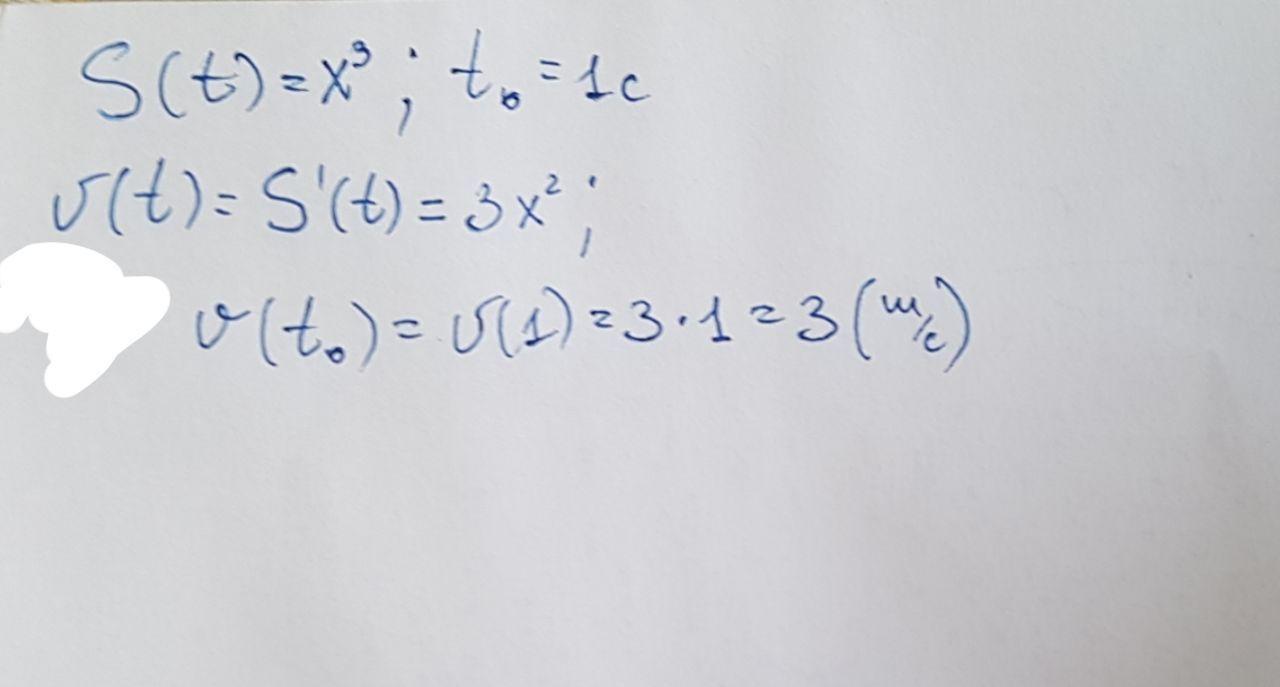 S(t)=x³; t₀=1c
v(t)=S'(t)=3x²;
v(t₀)=v(1)=3·1=3(м/c)